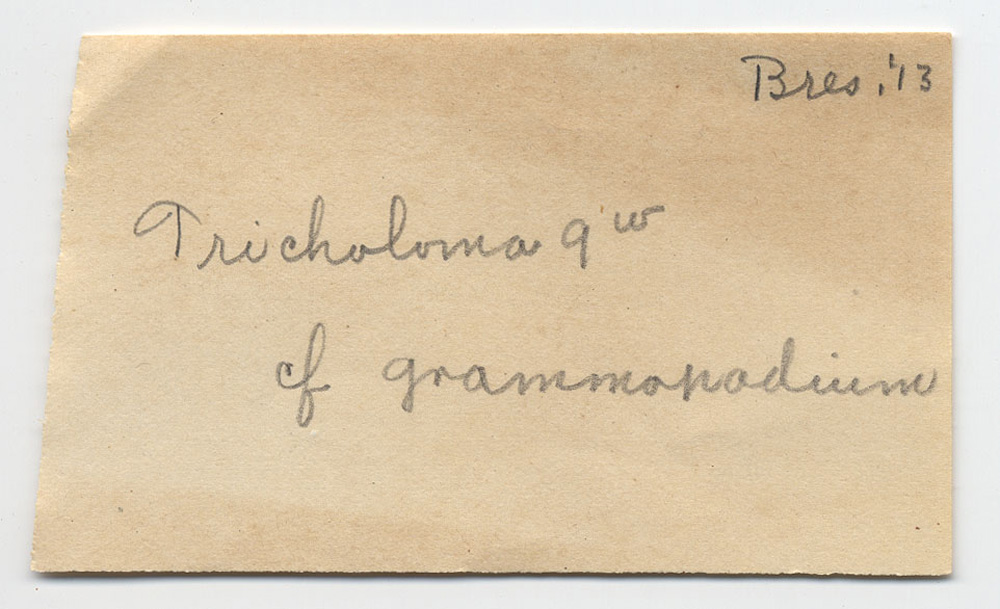 Bres. '13
Tricholoma 9 w
cf grammopodium